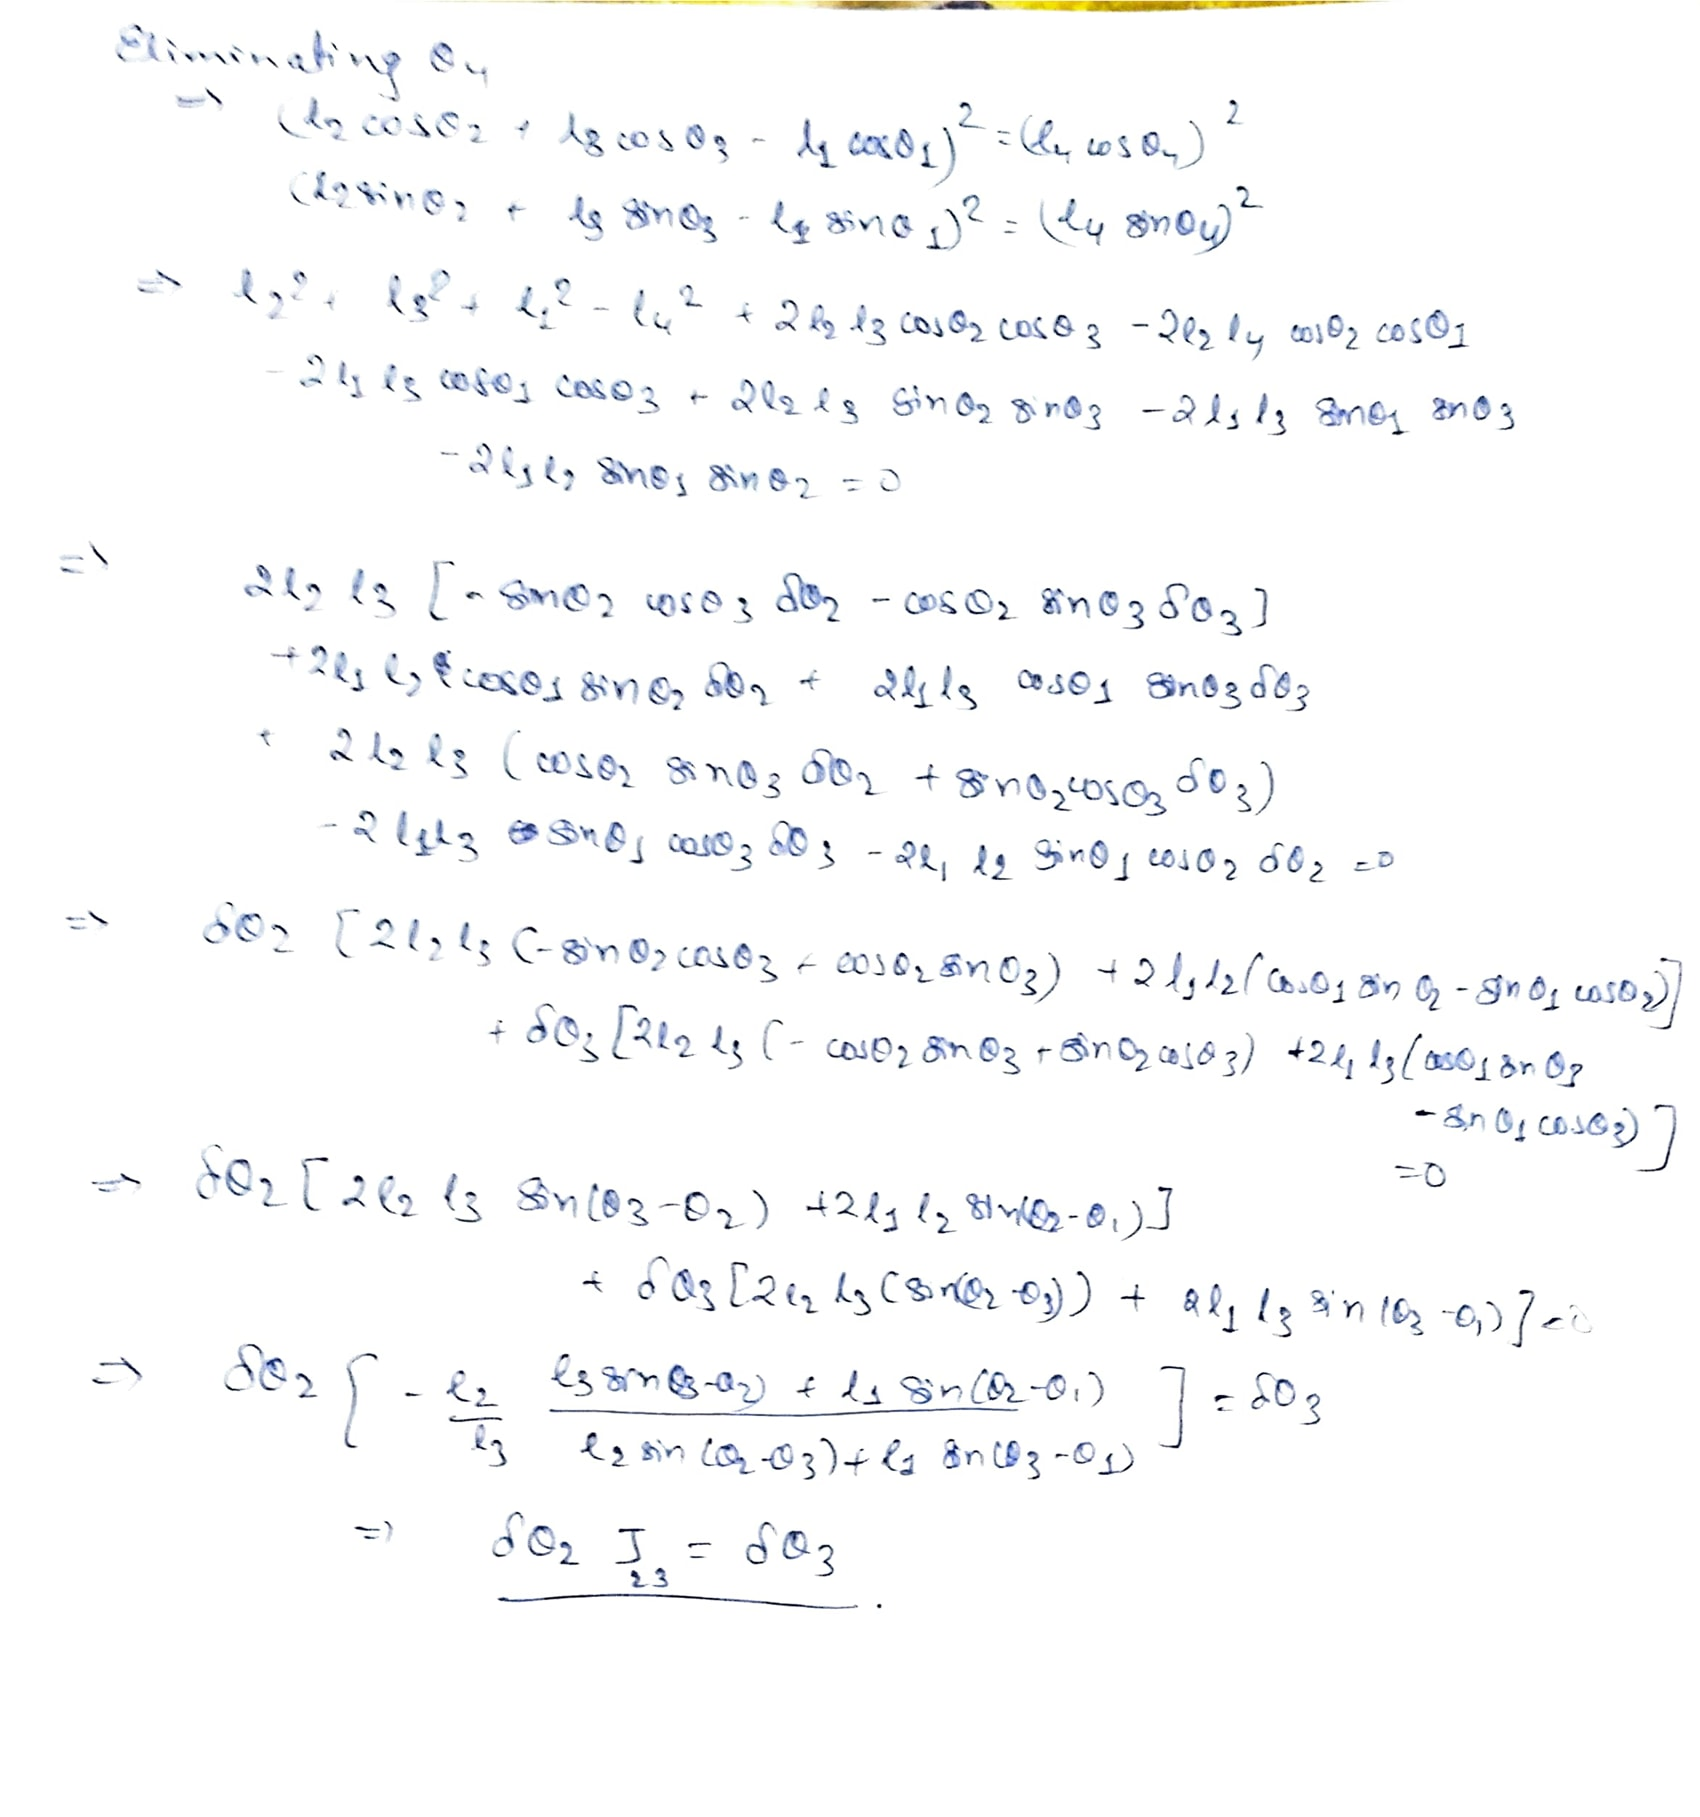 Eliminating θ4
=> (l2 cosθ2 + l3 cosθ3 - l1 cosθ1)² = (l4 cosθ4)²
(l2 sinθ2 + l3 sinθ3 - l1 sinθ1)² = (l4 sinθ4)²
=> l2² + l3² + l1² - l4² + 2l2 l3 cosθ2 cosθ3 - 2l2 l4 cosθ2 cosθ1
- 2l1 l3 cosθ1 cosθ3 + 2l2 l3 sinθ2 sinθ3 - 2l1 l3 sinθ1 sinθ3
- 2l1 l2 sinθ1 sinθ2 = 0
=> 2l2 l3 [- sinθ2 cosθ3 δθ2 - cosθ2 sinθ3 δθ3]
+ 2l1 l2 cosθ1 sinθ2 δθ2 + 2l1 l3 cosθ1 sinθ3 δθ3
+ 2l2 l3 (cosθ2 sinθ3 δθ2 + sinθ2 cosθ3 δθ3)
- 2l1 l3 sinθ1 cosθ3 δθ3 - 2l1 l2 sinθ1 cosθ2 δθ2 = 0
=> δθ2 [2l2 l3 (- sinθ2 cosθ3 + cosθ2 sinθ3) + 2l1 l2 (cosθ1 sinθ2 - sinθ1 cosθ2)]
+ δθ3 [2l2 l3 (- cosθ2 sinθ3 + sinθ2 cosθ3) + 2l1 l3 (cosθ1 sinθ3
- sinθ1 cosθ3)]
= 0
=> δθ2 [2l2 l3 sin(θ3-θ2) + 2l1 l2 sin(θ2-θ1)]
+ δθ3 [2l2 l3 (sin(θ2-θ3)) + 2l1 l3 sin(θ3-θ1)] = 0
=> δθ2 [ - l2/l3 (l3 sin(θ3-θ2) + l1 sin(θ2-θ1))/(l2 sin(θ2-θ3) + l1 sin(θ3-θ1)) ] = δθ3
=> δθ2 J23 = δθ3.